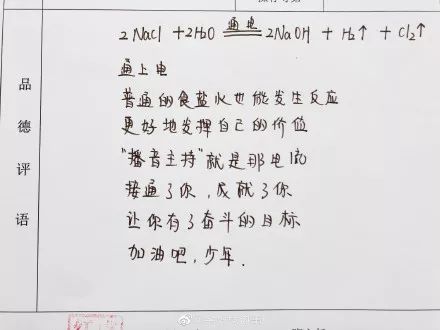 2NaCl + 2H2O 通电 2NaOH + H2↑ + Cl2↑
通上电
普通的食盐水也能发生反应
更好地发挥自己的价值
"播音主持"就是那电流
接通了你，成就了你
让你有了奋斗的目标
加油吧，少年.
品德评语